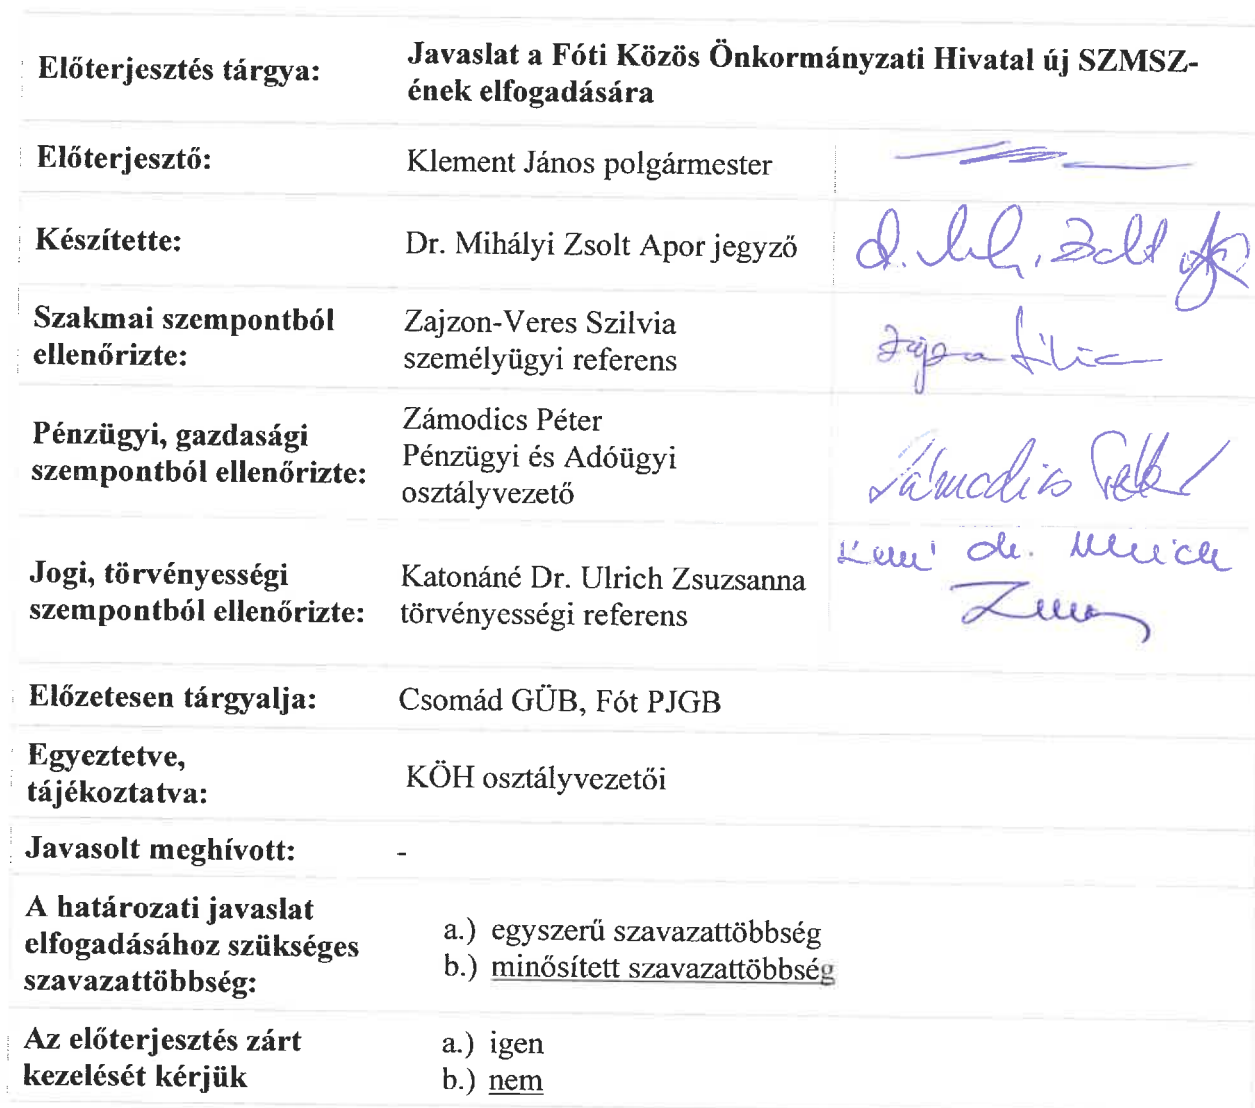 Előterjesztés tárgya:
Javaslat a Fóti Közös Önkormányzati Hivatal új SZMSZ-
ének elfogadására
Előterjesztő:
Klement János polgármester
Készítette:
Dr. Mihályi Zsolt Apor jegyző
Szakmai szempontból
ellenőrizte:
Zajzon-Veres Szilvia
személyügyi referens
Pénzügyi, gazdasági
szempontból ellenőrizte:
Zámodics Péter
Pénzügyi és Adóügyi
osztályvezető
Jogi, törvényességi
szempontból ellenőrizte:
Katonáné Dr. Ulrich Zsuzsanna
törvényességi referens
Előzetesen tárgyalja:
Csomád GÜB, Fót PJGB
Egyeztetve,
tájékoztatva:
KÖH osztályvezetői
Javasolt meghívott:
-
A határozati javaslat
elfogadásához szükséges
szavazattöbbség:
a.) egyszerű szavazattöbbség
b.) minősített szavazattöbbség
Az előterjesztés zárt
kezelését kérjük
a.) igen
b.) nem